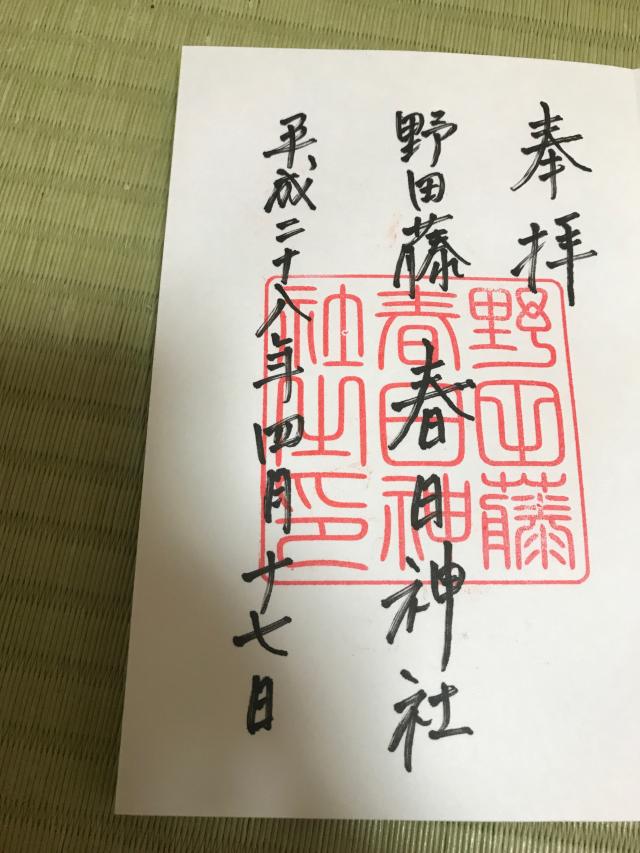 奉拝
野田藤春日神社
平成二十八年四月十七日
野田藤
春日神
社之印